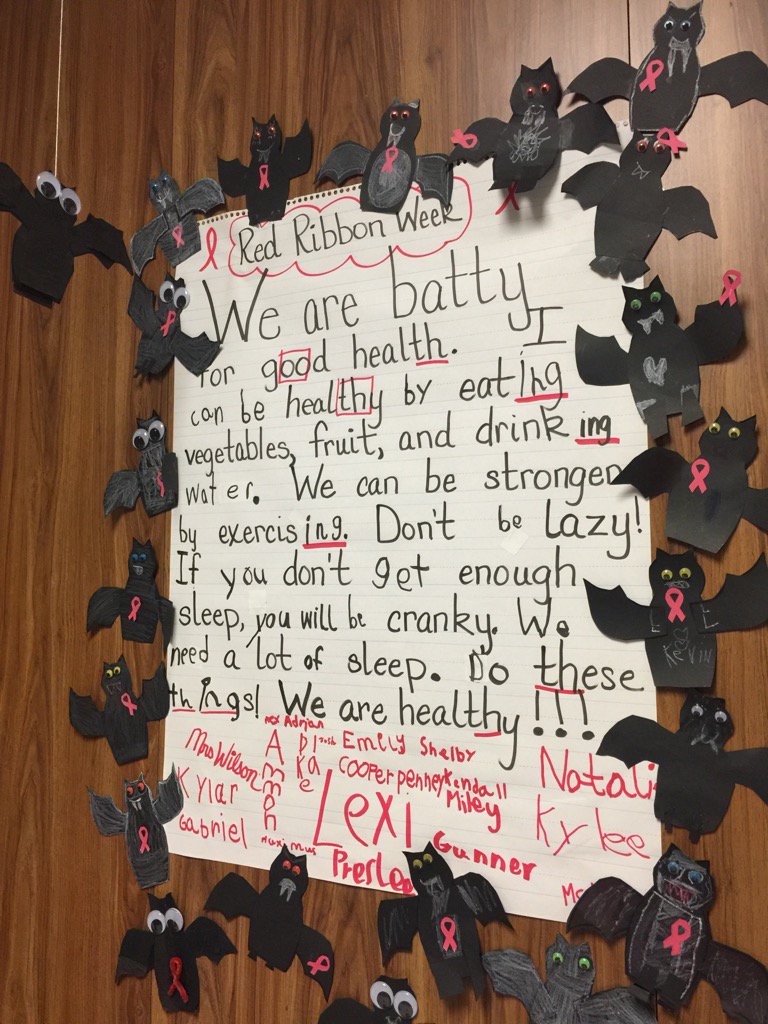 Red Ribbon Week
We are batty
for good health. I
can be healthy by eating
vegetables, fruit, and drinking
water. We can be stronger
by exercising. Don't be lazy!
If you don't get enough
sleep, you will be cranky. We
need a lot of sleep. Do these
things! We are healthy!!!
Adrian
Mrs Wilson
Emily Shelby
Cooper penney Kendall
Miley
Natali
Kylar
Lexi
Kylee
Gabriel
Maximus
Gunner
Preslee
Kevin